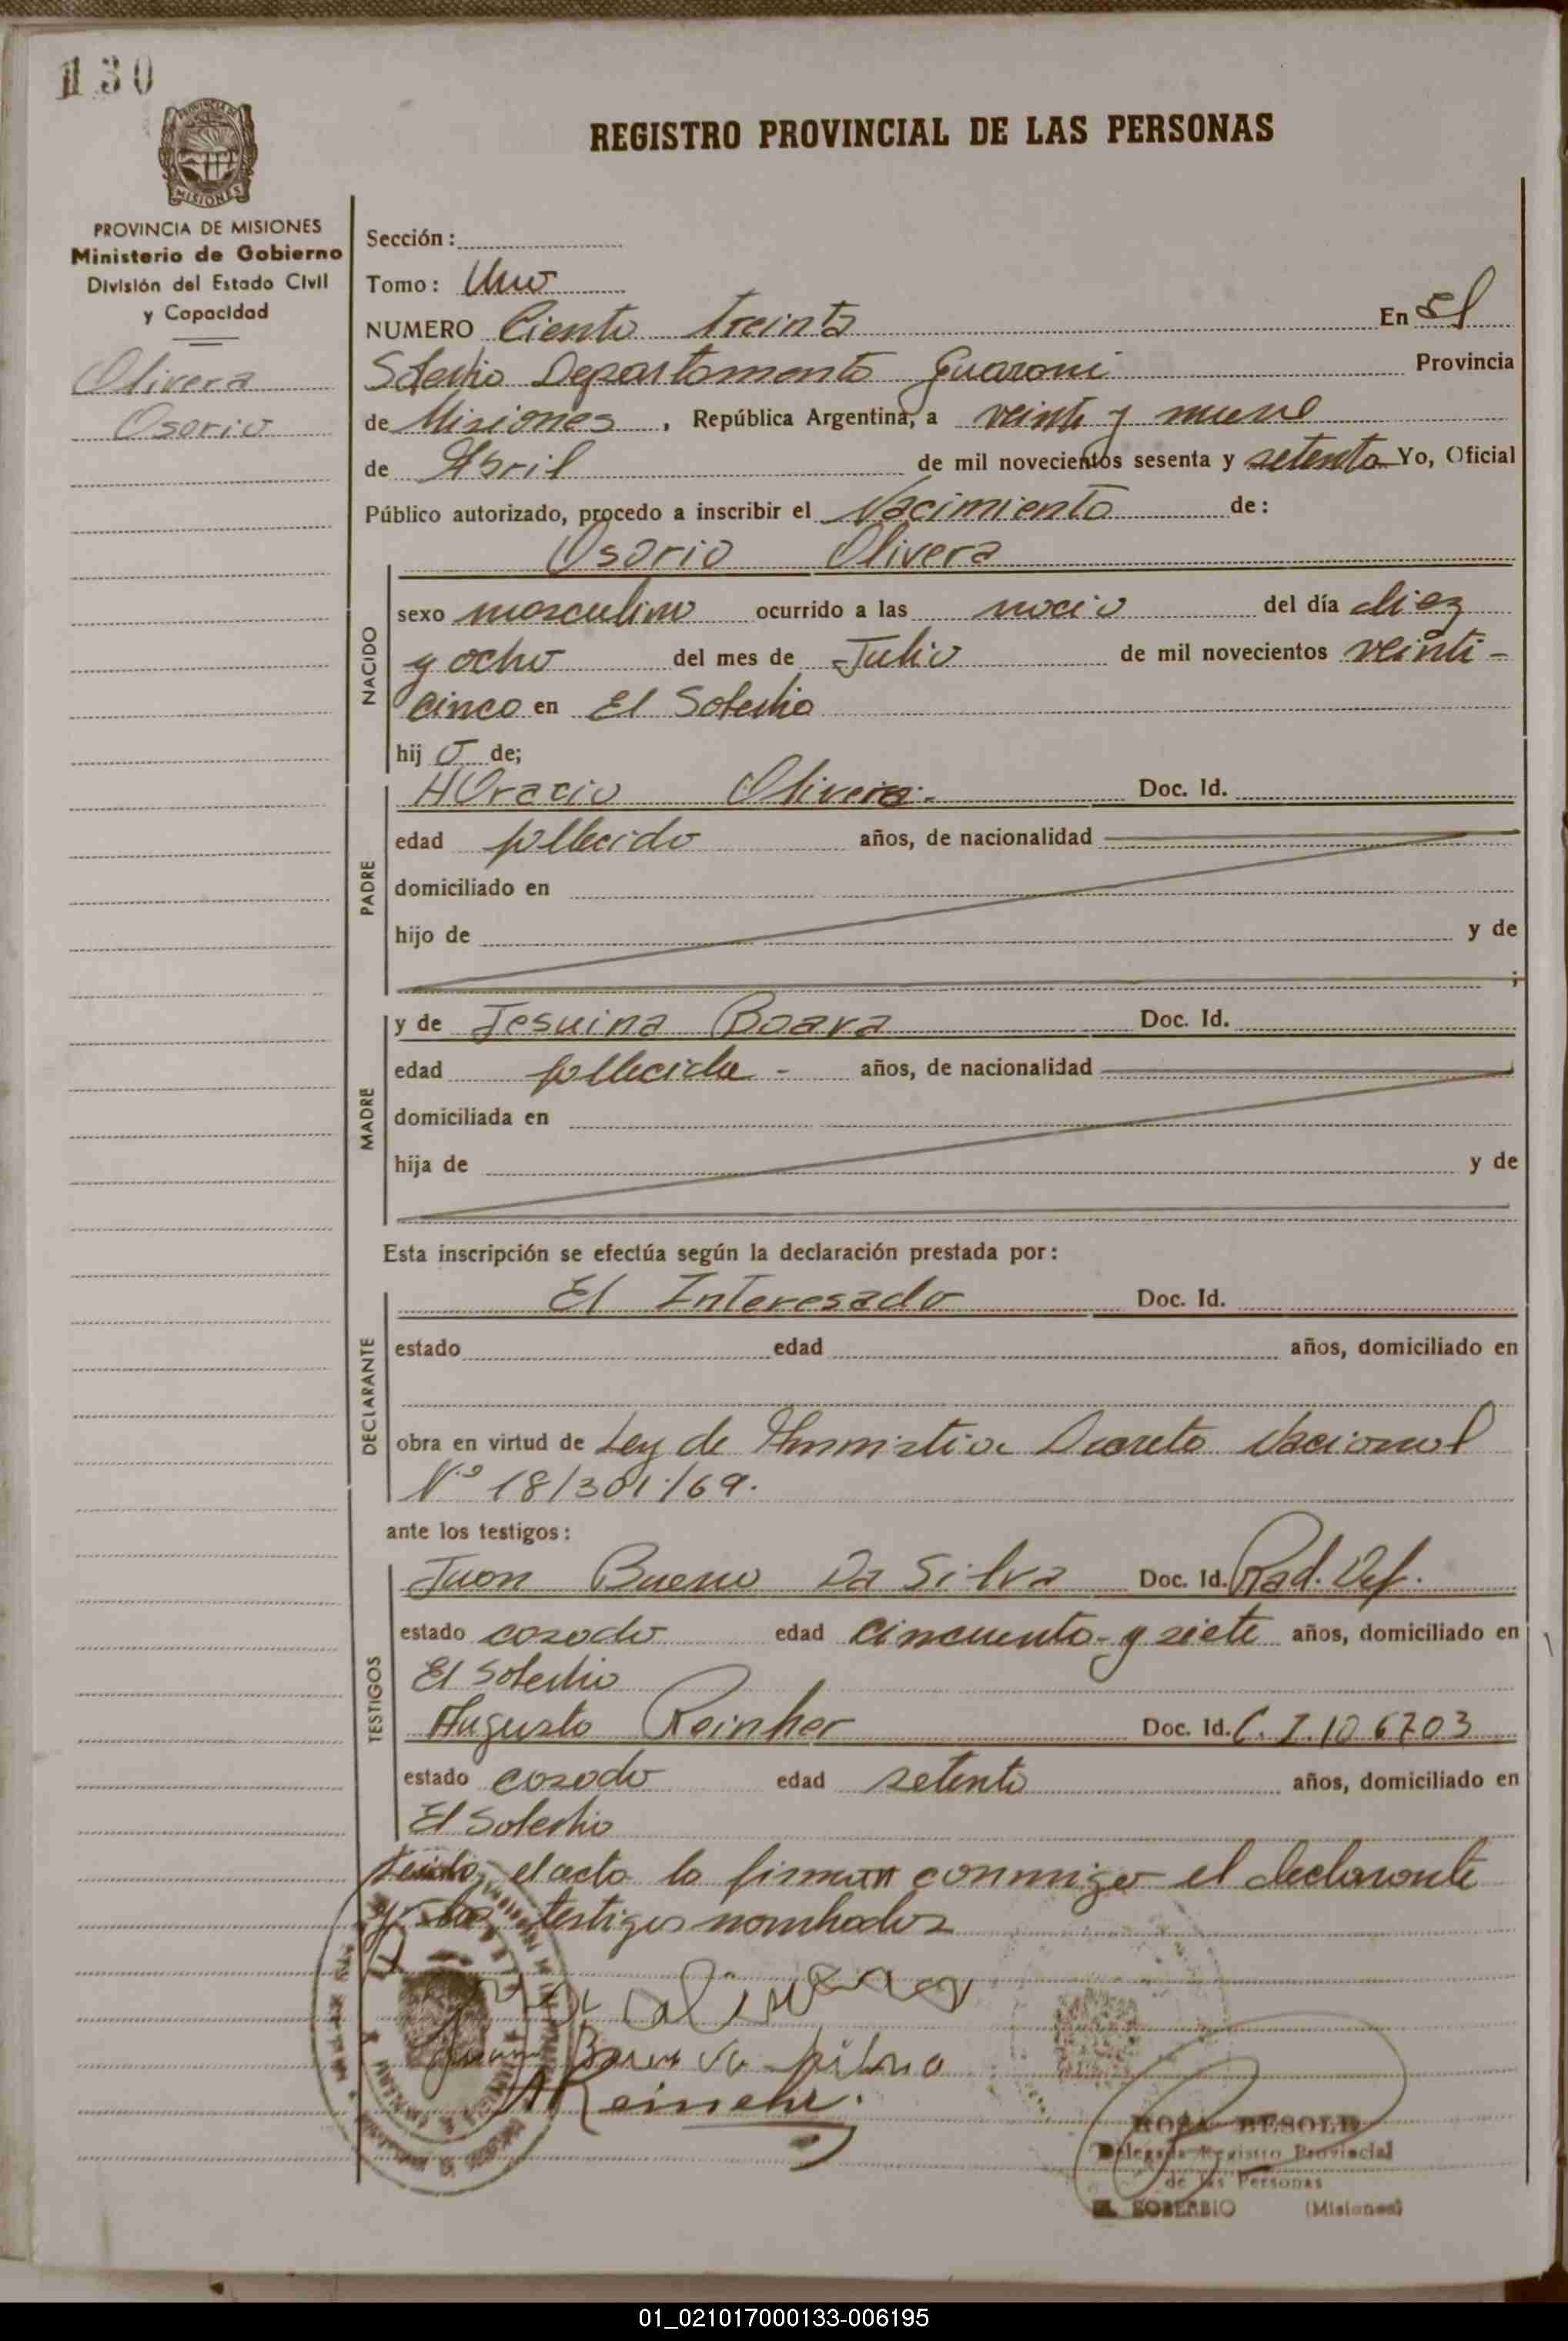 130
REGISTRO PROVINCIAL DE LAS PERSONAS
PROVINCIA DE MISIONES
Ministerio de Gobierno
División del Estado Civil
y Capacidad
Olivera
Osorio
Sección:
Tomo: Uno
NUMERO Ciento Treinta En El
Soberbio Departamento Guarani Provincia
de Misiones, República Argentina, a veinte y nueve
de Abril de mil novecientos sesenta y setenta Yo, Oficial
Público autorizado, procedo a inscribir el Nacimiento de:
Osorio Olivera
NACIDO
sexo masculino ocurrido a las del día diez
y ocho del mes de Julio de mil novecientos veinti-
cinco en El Soberbio
hij o de;
PADRE
HOracio Olivera.- Doc. Id.
edad fallecido años, de nacionalidad
domiciliado en
hijo de y de
;
MADRE
y de Jesuina Boava Doc. Id.
edad fallecida - años, de nacionalidad
domiciliada en
hija de y de
Esta inscripción se efectúa según la declaración prestada por:
DECLARANTE
El Interesado Doc. Id.
estado edad años, domiciliado en
obra en virtud de Ley de Amnistia Decreto Nacional
Nº 18/301/69.
ante los testigos:
TESTIGOS
Juan Bueno Da Silva Doc. Id. Rad. Def.
estado casado edad cincuenta y siete años, domiciliado en
El Soberbio
Augusto Reinher Doc. Id. C. I. 106703
estado casado edad setenta años, domiciliado en
El Soberbio
Leido, el acta la firman conmigo el declarante
y los testigos nombrados
Olivera
Juan Bueno da Silva
AReinehr.
ROSA BESOLD
Delegada Registro Provincial
de las Personas
EL SOBERBIO (Misiones)
01_021017000133-006195